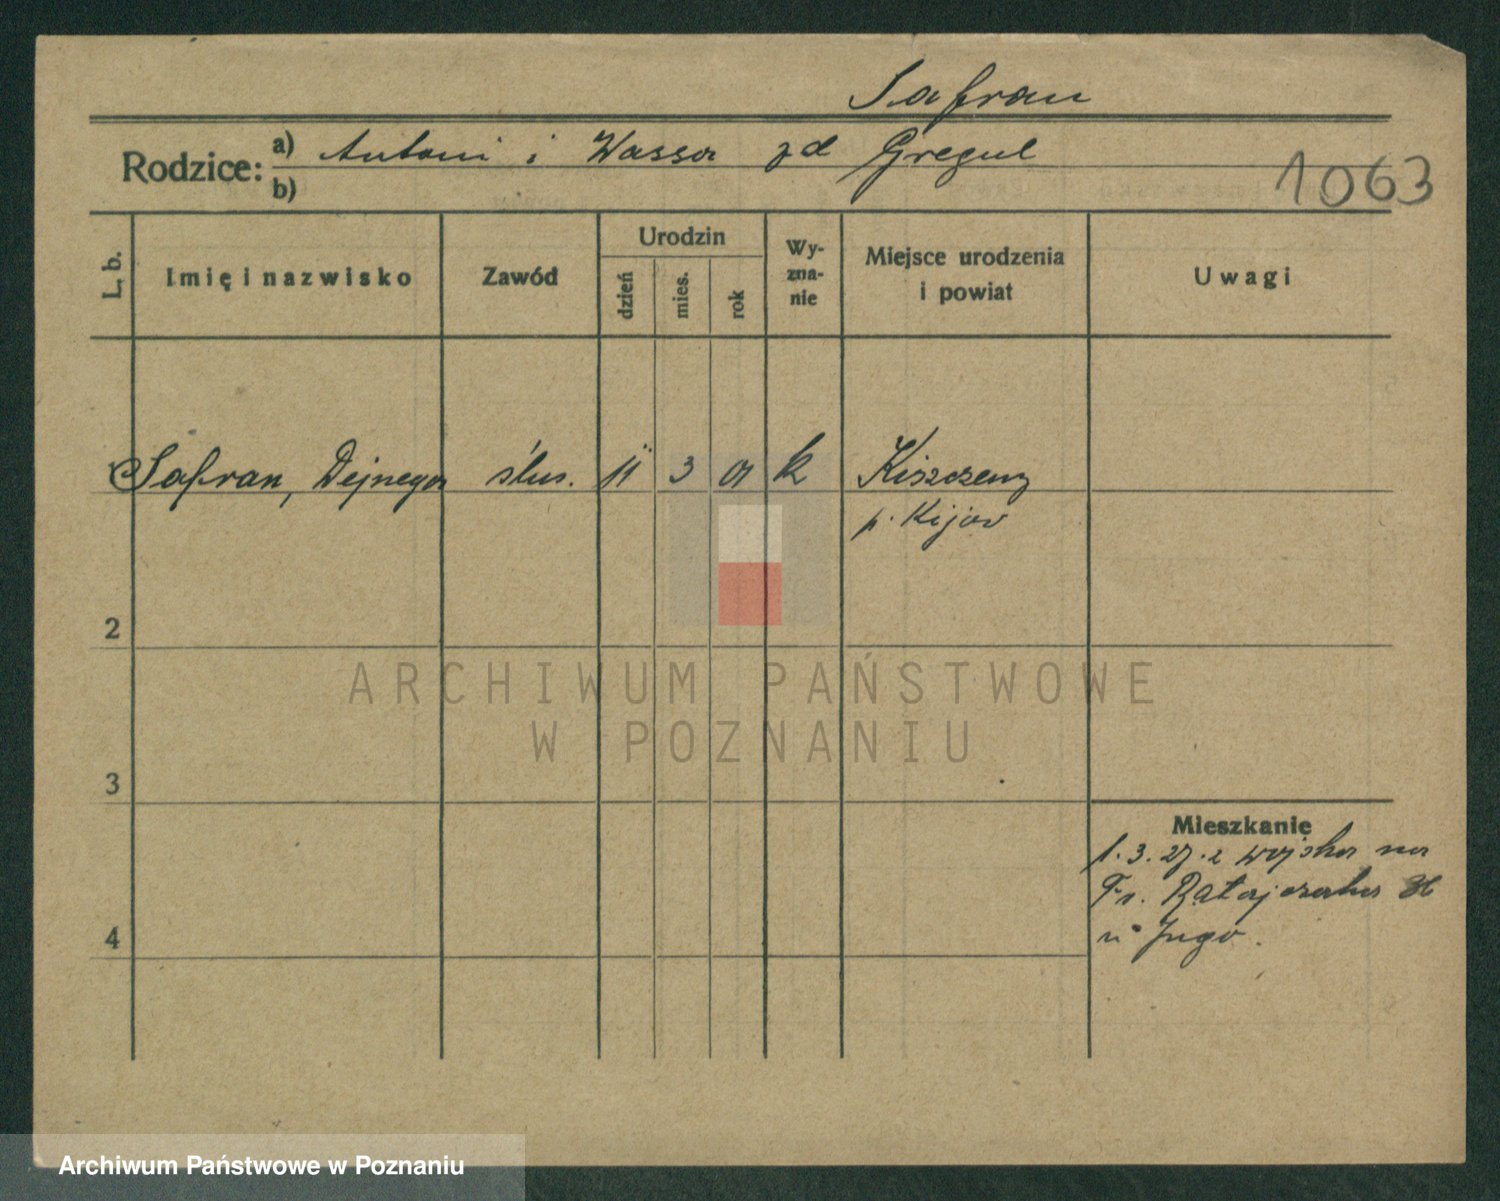 Safran
Rodzice: a) Antoni i Wassa zd Gregul
b)
1063
L. b.
Imię i nazwisko
Zawód
Urodzin
dzień
mies.
rok
Wy-
zna-
nie
Miejsce urodzenia
i powiat
Uwagi
Safran, Dejnega ślus. 11 3 01 k Kiszczeny
p. Kijow
2
3
4
Mieszkanie
1. 3. 27. z wojska na
Fr. Ratajczaka
u Jugo.
ARCHIWUM PAŃSTWOWE
W POZNANIU
Archiwum Państwowe w Poznaniu